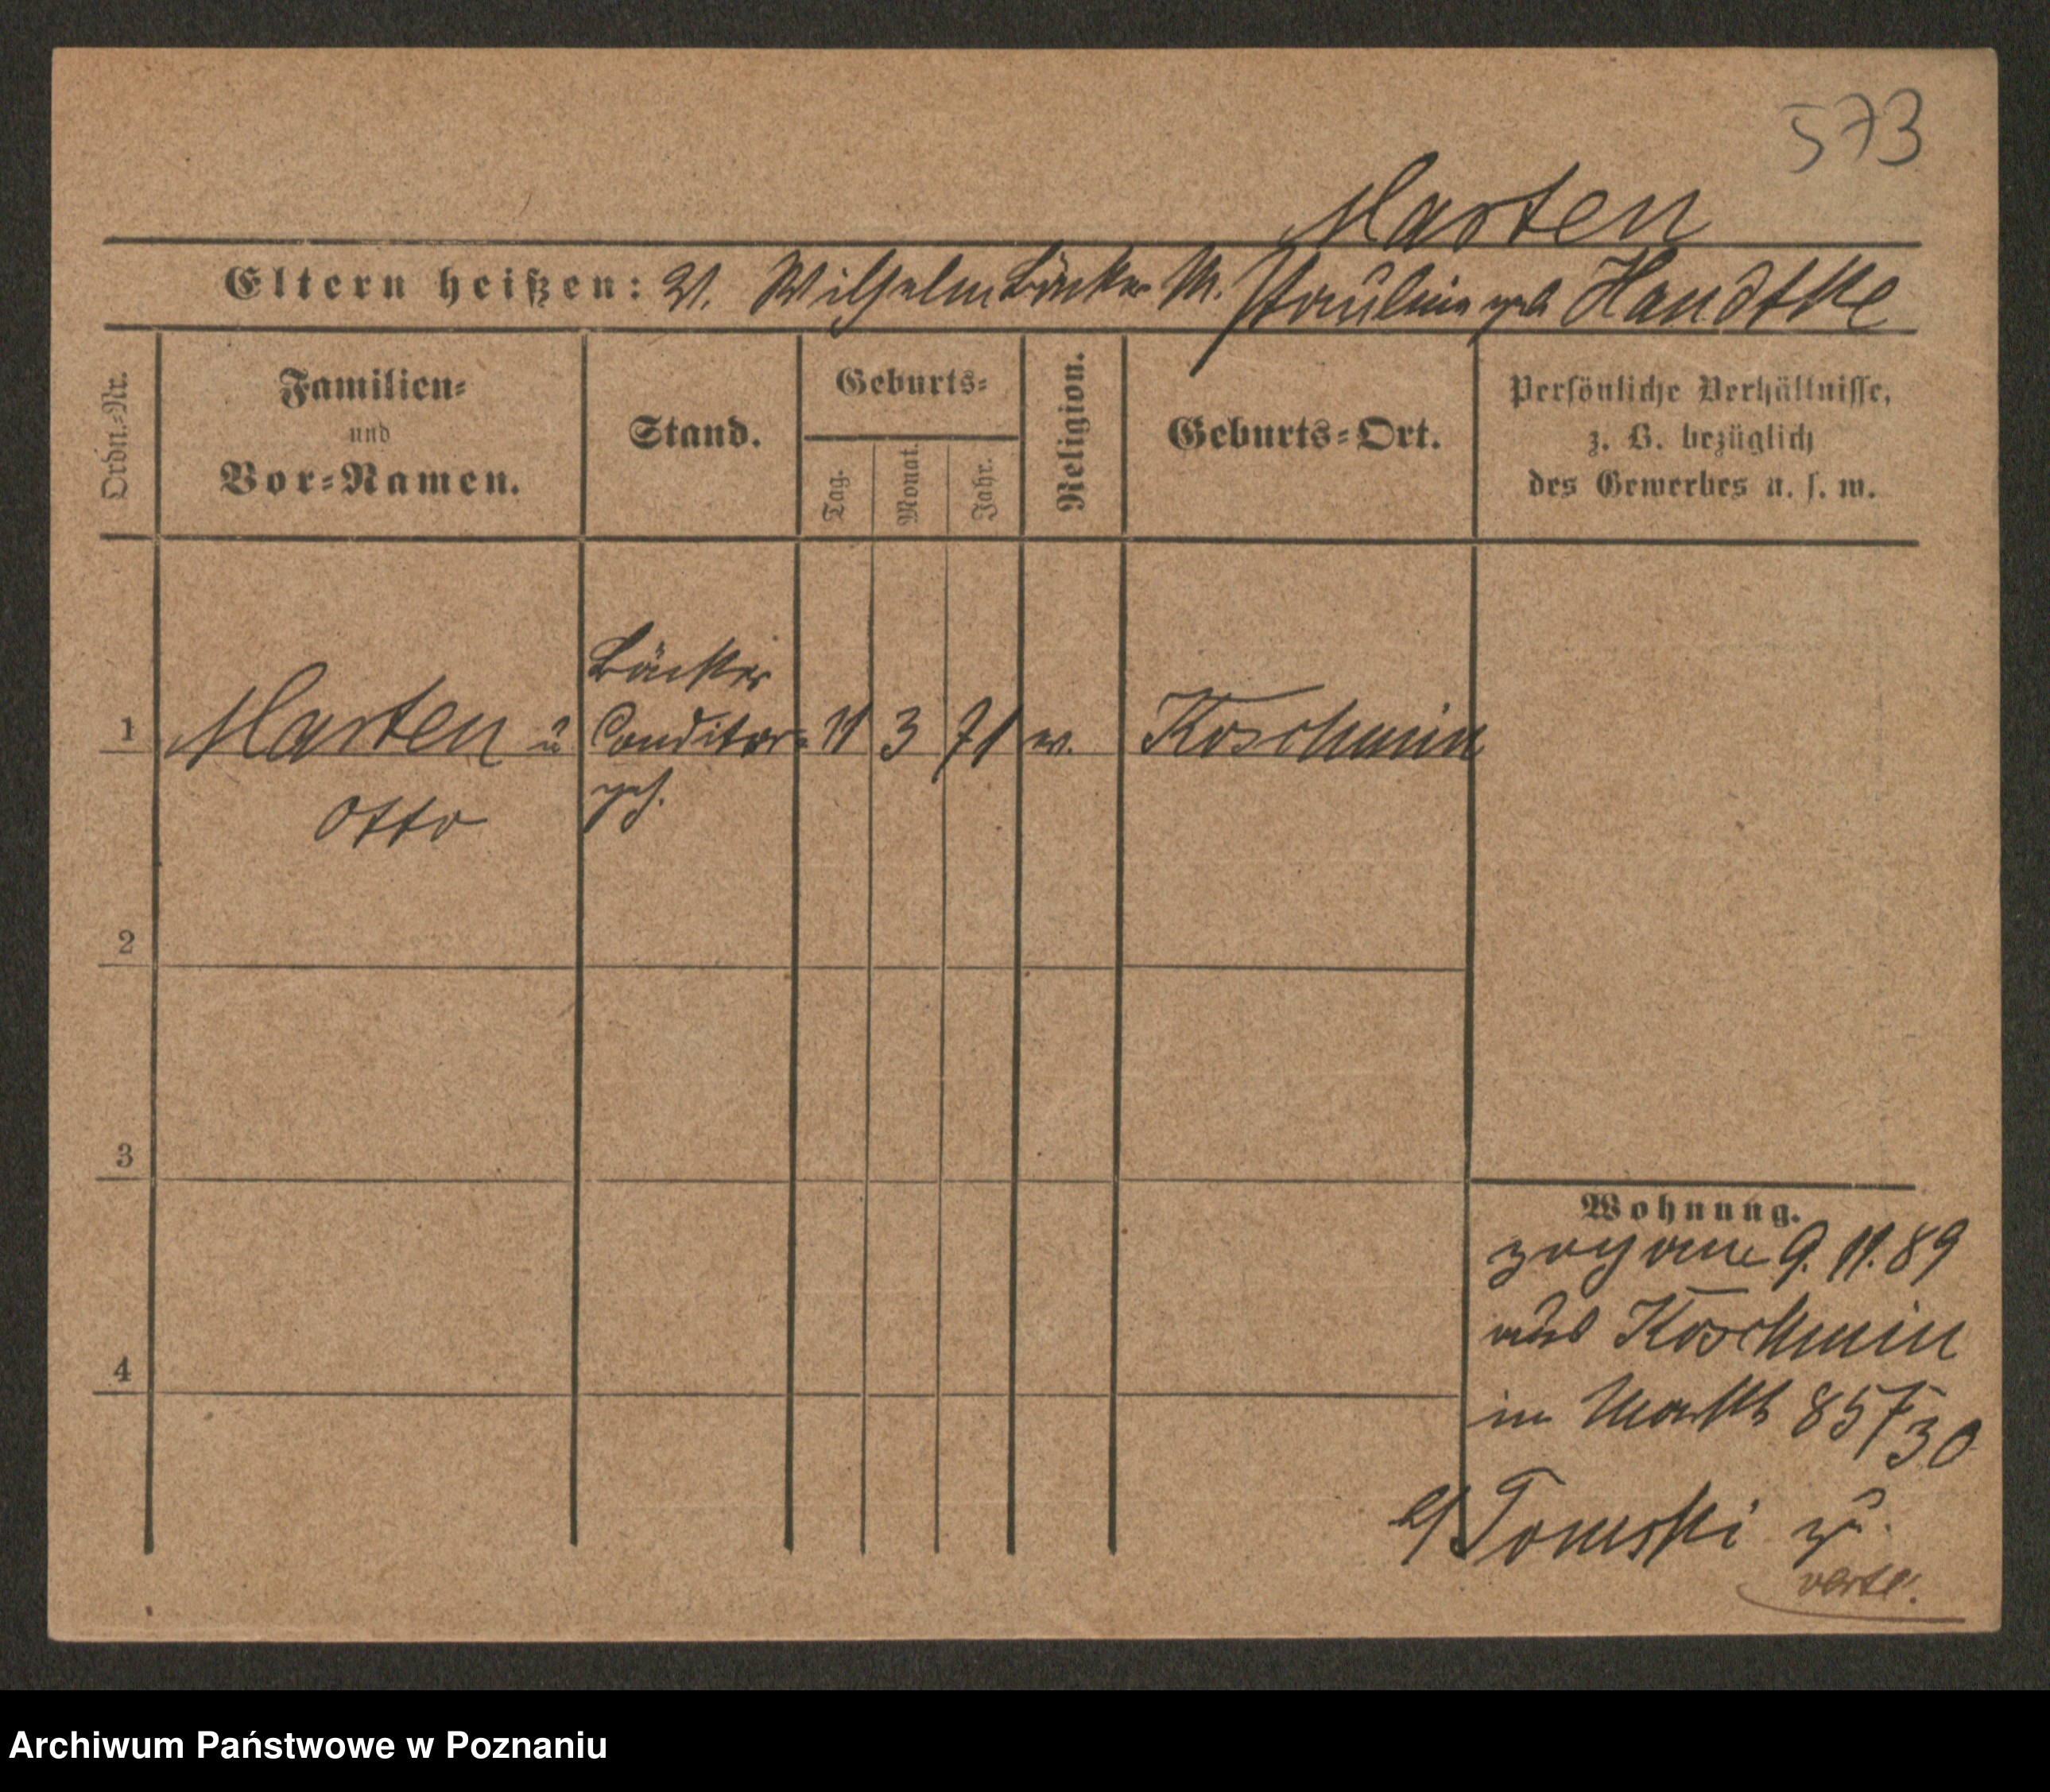 573
Marten
Eltern heißen: V. Wilhelm Bäcker M. Pauline geb Handtke
Ordn.-Nr.
Familien-
und
Vor-Namen.
Stand.
Geburts-
Tag.
Monat.
Jahr.
Religion.
Geburts-Ort.
Persönliche Verhältnisse,
z. B. bezüglich
des Gewerbes u. s. w.
1 Marten Bäcker u Conditor- 11 3 71 Koschmin
Otto
2
3
4
Wohnung.
zog am 9. 11. 89
aus Koschmin
in Markt 85/30
b/ Tomski zu
verte!
Archiwum Państwowe w Poznaniu